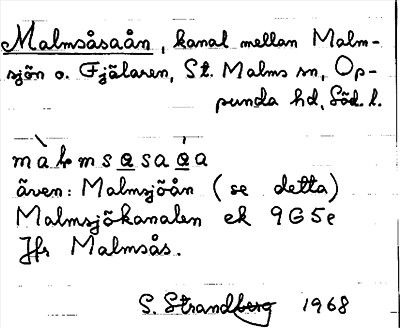 Malmsåsaån, kanal mellan Malm-
sjön o. Fjälaren, St. Malms sn, Op-
punda hd, Söd. l.
màlmsɑsaɑ́a
även: Malmsjöån (se detta)
Malmsjökanalen ek 9G5e
Jfr Malmsås.
S. Strandberg 1968